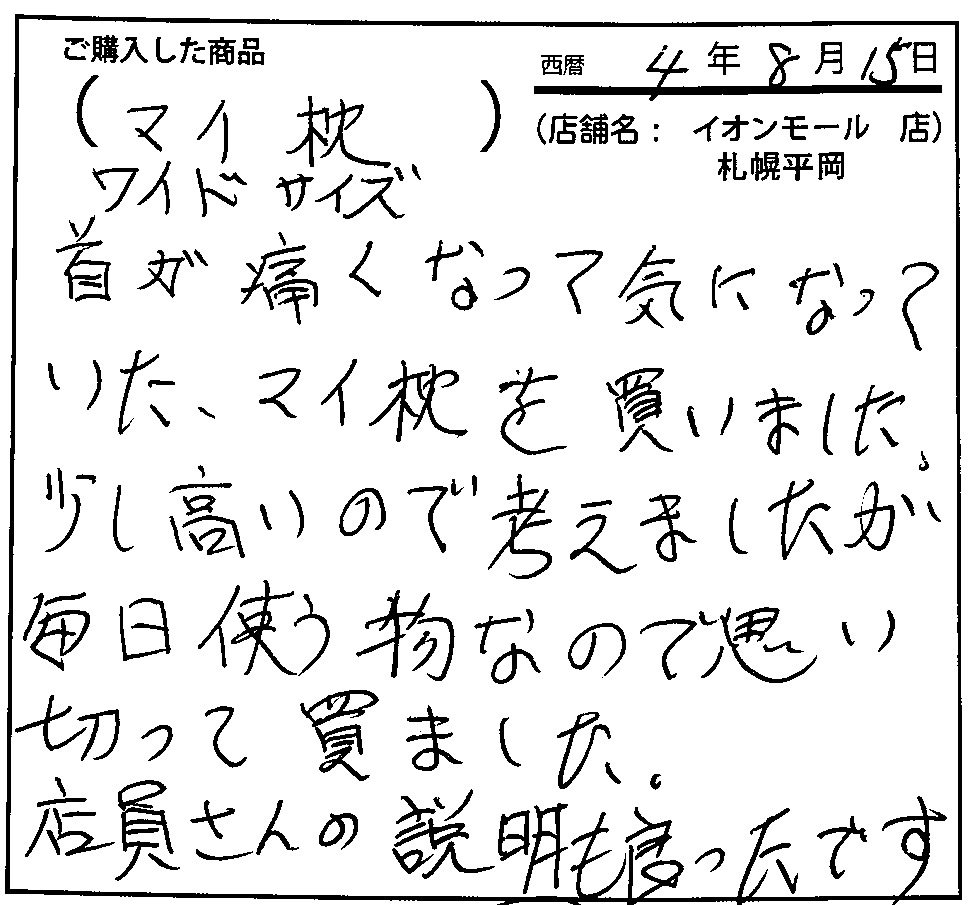 ご購入した商品
西暦 4年8月15日
(マイ枕)
(店舗名： イオンモール 店)
札幌平岡
ワイドサイズ
首が痛くなって気になって
いた、マイ枕を買いました。
少し高いので考えましたが
毎日使う物なので思い
切って買ました。
店員さんの説明も良ったです